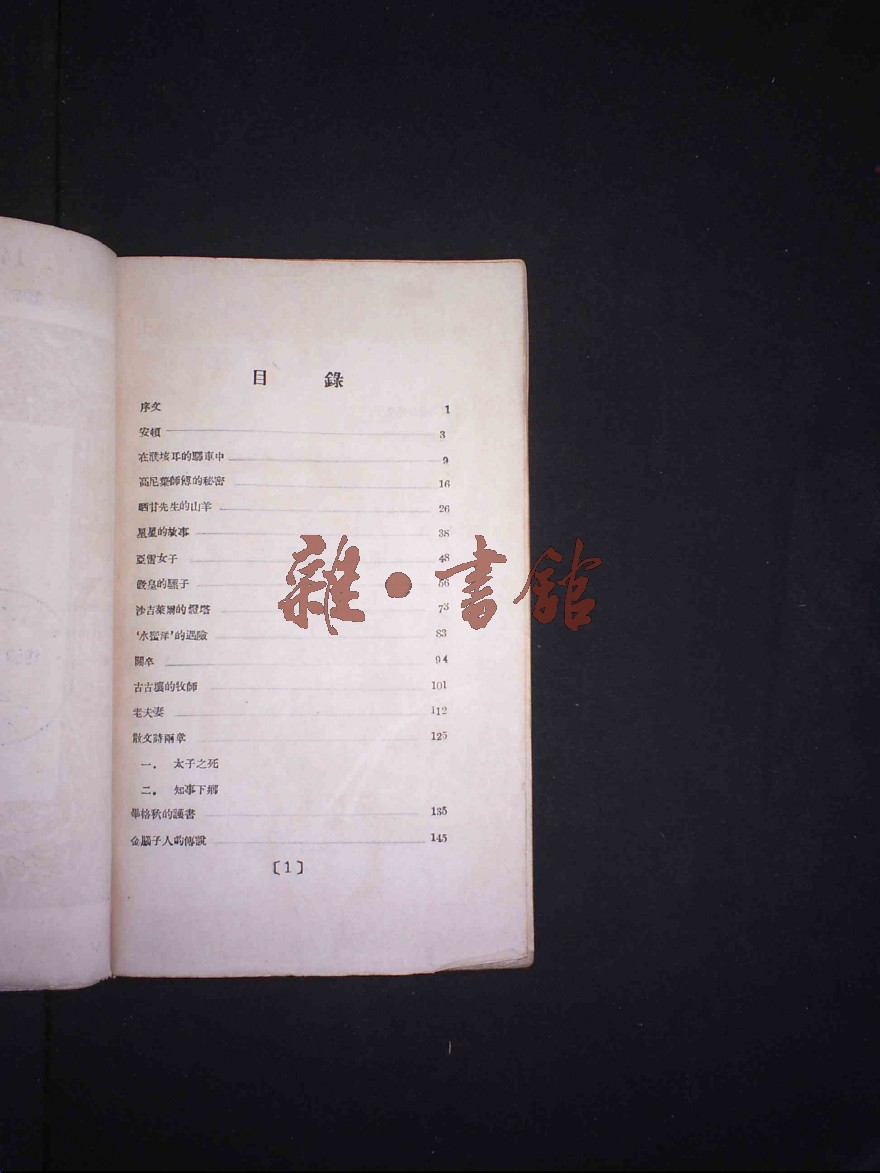 目 錄
序文 1
安頓 3
在濮垓耳的驛車中 9
高尼葉師傅的秘密 16
晒甘先生的山羊 26
星星的故事 38
亞雷女子 48
敎皇的騾子 56
沙吉萊爾的燈塔 73
‘水蜜洋’的遇險 83
關卒 94
古古壤的牧師 101
老夫妻 112
散文詩兩章 125
一. 太子之死
二. 知事下鄉
畢格秋的護書 135
金腦子人的傳說 145
〔1〕
雜·書館